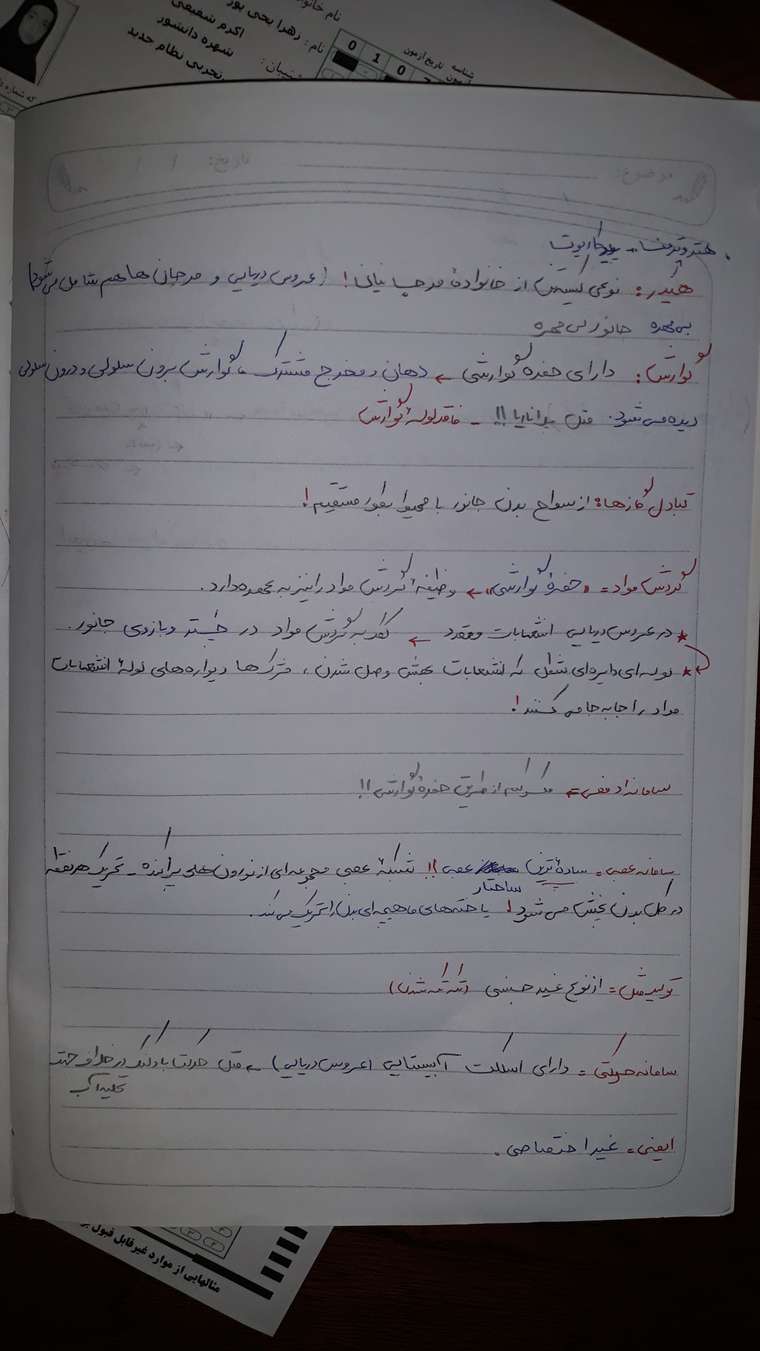 نام خانوا
نام : زهرا یحی پور
اکرم شفیعی
شهره دانشور
تجربی نظام جدید
شناسه تاریخ آزمون
آزمون
0 1 0
موضوع: تاریخ: / /
هتروتروف - یوکاریوت
هیدر: نوعی کیسه‌تن از خانوادهٔ مرجانیان! (عروس دریایی و مرجان ها هم شامل می شود)
بی مهره جانور بی مهره
گوارش: دارای حفره گوارشی ← دهان و مخرج مشترک، گوارش برون سلولی و درون سلولی
دیده می شود. مثل پلاناریا!! - فاقد لوله گوارش
تبادل گازها: از سطح بدن جانور با محیط بطور مستقیم!
گردش مواد = «حفرهٔ گوارشی» ← وظیفهٔ گردش مواد را نیز به عهده دارد.
* در عروس دریایی انشعابات متعدد ← کمک به گردش مواد در چتر و بازوی جانور.
* لوله ای دایره ای شکل که انشعابات بهش وصل شدن، مژک ها دیواره های لولهٔ انشعابات
مواد را جابه جا می کنند!
سامانه دفعی = از طریق حفرهٔ گوارشی!!
سامانه عصبی = ساده ترین ساختار عصبی!! شبکهٔ عصبی مجموعه ای از نورون های پراکنده - تحریک هر نقطه
در کل بدن پخش می شود! یاخته های ماهیچه ای بدن را تحریک می کند.
تولید مثل = از نوع غیر جنسی
سامانه حرکتی = دارای اسکلت آب ایستایی (عروس دریایی) ← مثل حرکت بادکنک در خلاف جهت
تخلیه آب
ایمنی = غیر اختصاصی.
مثالهایی از موارد غیرقابل قبول